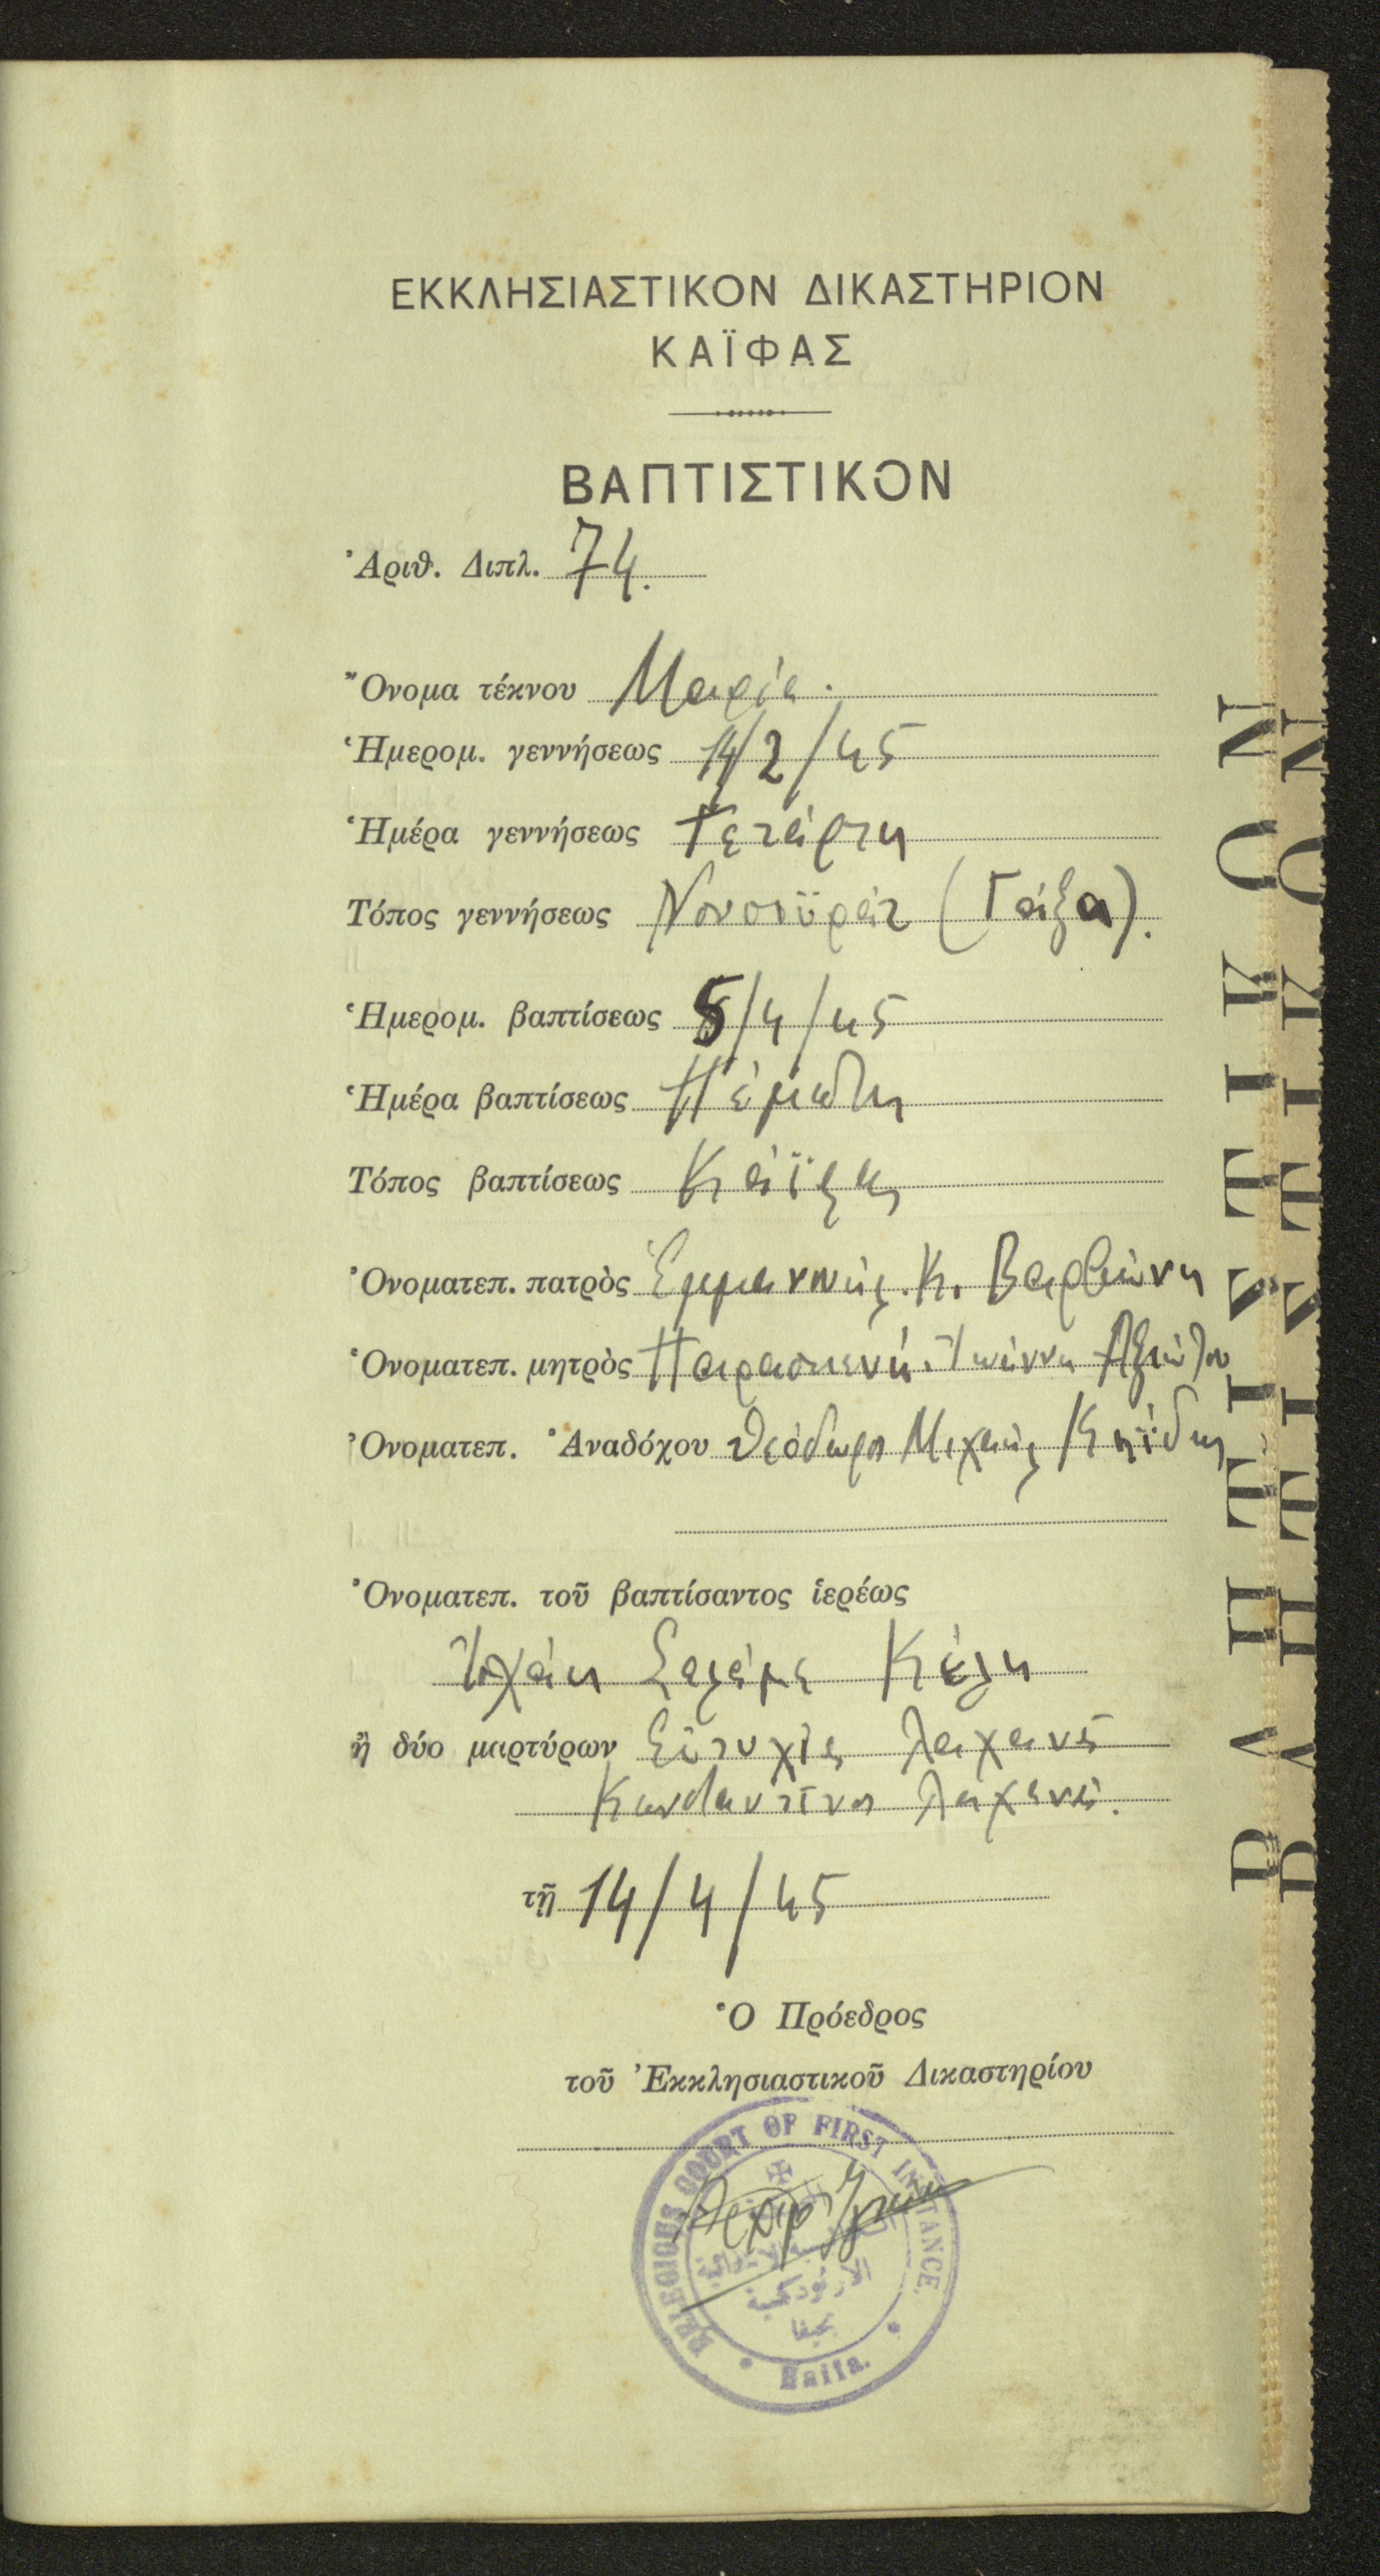 ΕΚΚΛΗΣΙΑΣΤΙΚΟΝ ΔΙΚΑΣΤΗΡΙΟΝ
ΚΑΪΦΑΣ
ΒΑΠΤΙΣΤΙΚΟΝ
Ἀριθ. Διπλ. 74.
Ὄνομα τέκνου Μαρία.
Ἡμερομ. γεννήσεως 14/2/45
Ἡμέρα γεννήσεως Τετάρτη
Τόπος γεννήσεως Νουσεϋράτ (Γάζα).
Ἡμερομ. βαπτίσεως 5/4/45
Ἡμέρα βαπτίσεως Πέμπτη
Τόπος βαπτίσεως Κάϊφα
Ὀνοματεπ. πατρὸς Ἐμμανουήλ Κ.
Ὀνοματεπ. μητρὸς Παρασκευή Ἰωάννη
Ὀνοματεπ. Ἀναδόχου Θεόδωρος Μιχαήλ
Ὀνοματεπ. τοῦ βαπτίσαντος ἱερέως
ἢ δύο μαρτύρων Εὐτυχία Λαχανᾶ
Κωνσταντῖνος Λαχανᾶ.
τῇ 14/4/45
Ὁ Πρόεδρος
τοῦ Ἐκκλησιαστικοῦ Δικαστηρίου
RELIGIOUS COURT OF FIRST INSTANCE.
الارثوذكسية
بحيفا
Haifa.
ΒΑΠΤΙΣΤΙΚΟΝ
ΒΑΠΤΙΣΤΙΚΟΝ